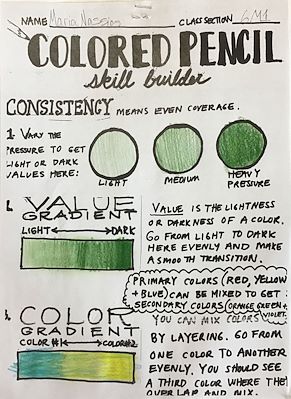 NAME Maria Nassios CLASS SECTION 6M1
COLORED PENCIL
skill builder
CONSISTENCY MEANS EVEN COVERAGE.
1. VARY THE
PRESSURE TO GET
LIGHT OR DARK
VALUES HERE:
LIGHT
MEDIUM
HEAVY
PRESSURE
VALUE
GRADIENT
LIGHT DARK
VALUE IS THE LIGHTNESS
OR DARKNESS OF A COLOR.
GO FROM LIGHT TO DARK
HERE EVENLY AND MAKE
A SMOOTH TRANSITION.
PRIMARY COLORS (RED, YELLOW
+ BLUE) CAN BE MIXED TO GET
SECONDARY COLORS (ORANGE GREEN +
VIOLET.
3. COLOR
GRADIENT
COLOR #1 COLOR #2
YOU CAN MIX COLORS
BY LAYERING. GO FROM
ONE COLOR TO ANOTHER
EVENLY. YOU SHOULD SEE
A THIRD COLOR WHERE THEY
OVERLAP AND MIX.